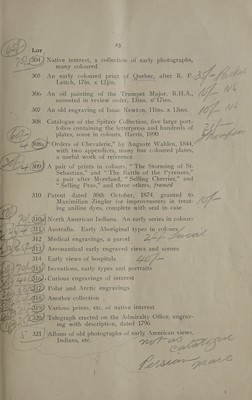 23
Lot
304 Native interest, a collection of early photographs,
many coloured
305 An early coloured print of Quebec, after R. P.
Leitch, 17in. x 12½in.
306 An oil painting of the Trumpet Major, R.H.A.,
mounted in review order, 13in. x 17in.
307 An old engraving of Isaac Newton, 11in. x 13in.
308 Catalogue of the Spitzer Collection, five large port-
folios containing the letterpress and hundreds of
plates, some in colours, Harris, 1890
308a "Orders of Chevalerie," by Auguste Wahlen, 1844,
with two appendices, many fine coloured plates,
a useful work of reference
309 A pair of prints in colours, "The Storming of St.
Sebastian," and "The Battle of the Pyrenees,"
a pair after Moreland, "Selling Cherries," and
"Selling Peas," and three others, framed
310 Patent dated 30th October, 1874, granted to
Maximilian Ziegler for improvements in treat-
ing aniline dyes, complete with seal in case
310a North American Indians. An early series in colours
311 Australia. Early Aboriginal types in colours
312 Medical engravings, a parcel
313 Aeronautical early engraved views and scenes
314 Early views of hospitals 40/-
315 Inventions, early types and portraits
316 Curious engravings of interest
317 Polar and Arctic engravings
318 Another collection
319 Various prints, etc. of native interest
320 Telegraph erected on the Admiralty Office, engrav-
ing with description, dated 1796
321 Album of old photographs of early American views,
Indians, etc.
not as
catalogue
Persian